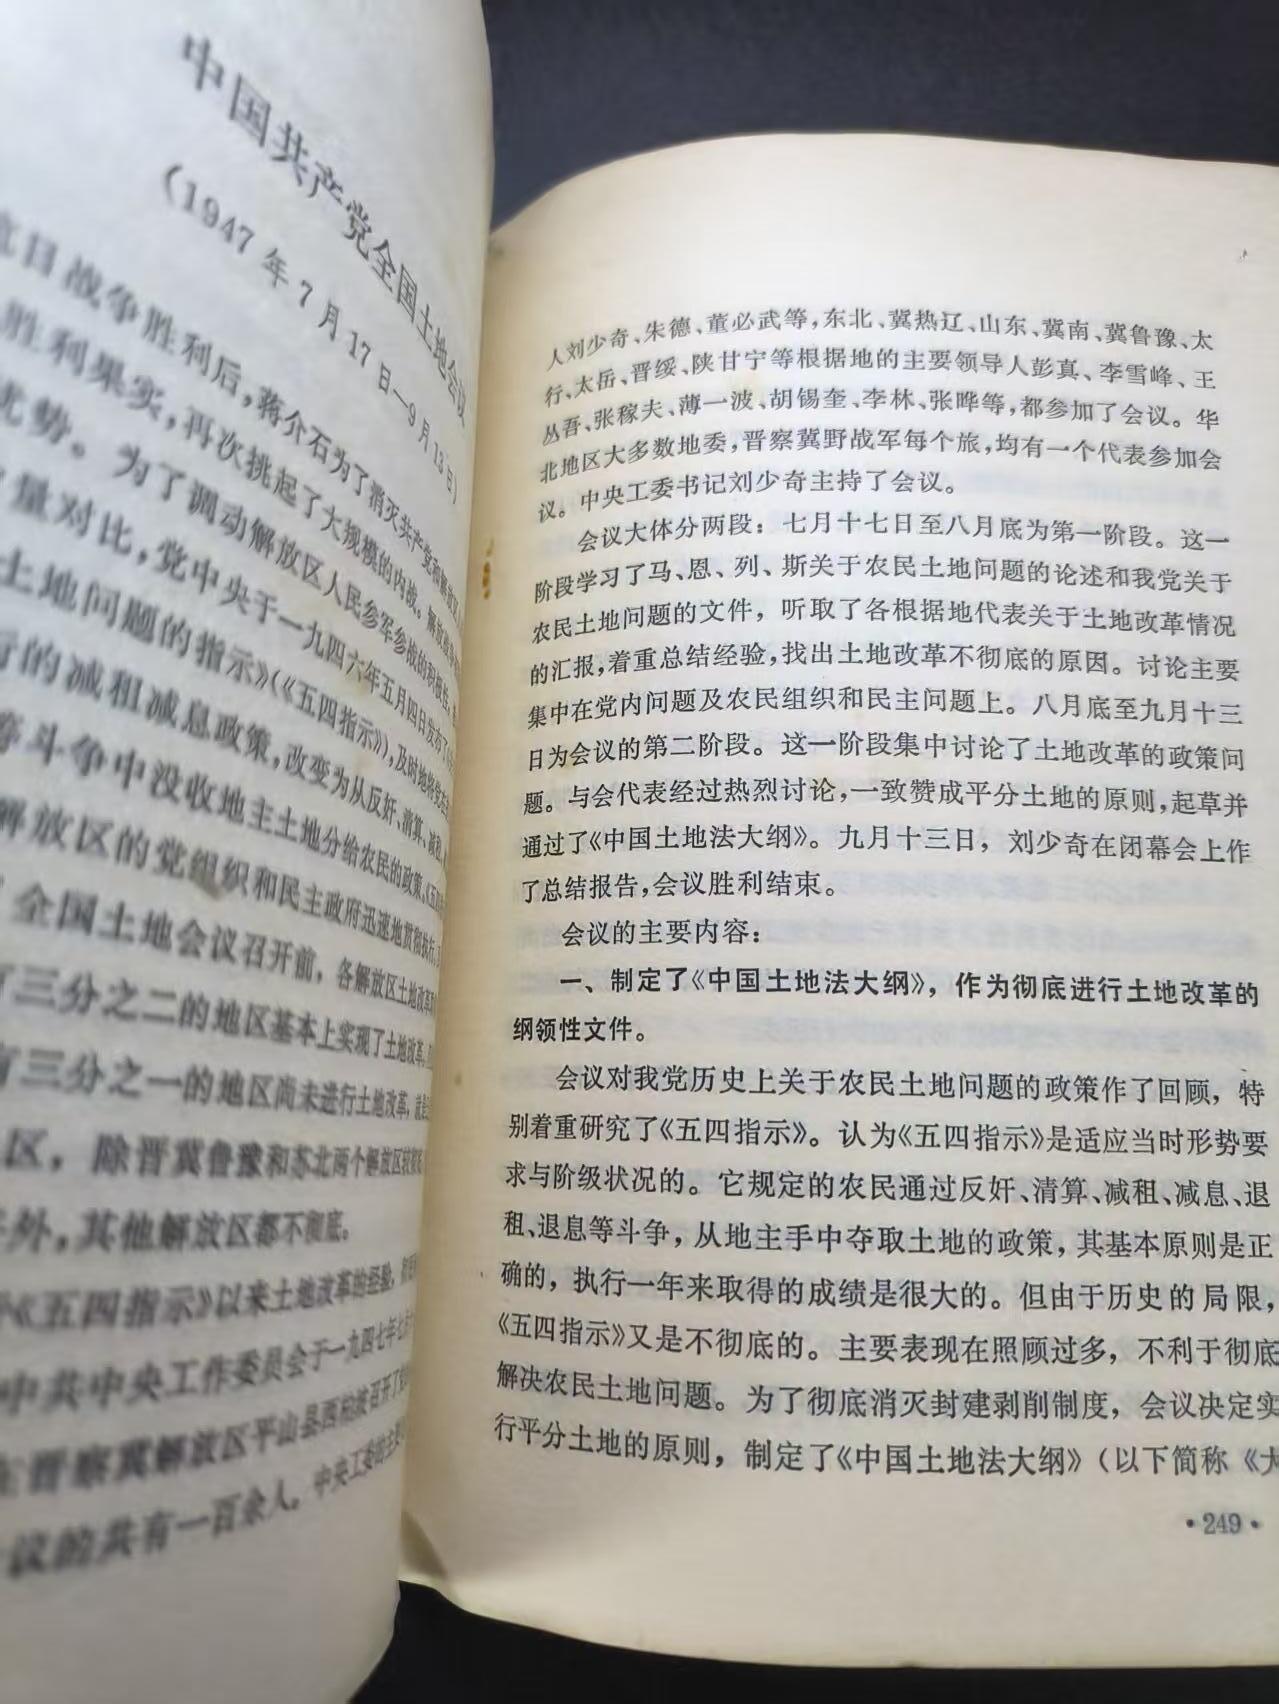 中国共产党全国土地会议
（1947年7月17日—9月13日）
抗日战争胜利后，蒋介石为了消灭共产党和解放区
胜利果实，再次挑起了大规模的内战。解放
优势。为了调动解放区人民参军参战的积极性，
量对比，党中央于一九四六年五月四日发布了
土地问题的指示》（《五四指示》），及时地将党在
行的减租减息政策，改变为从反奸、清算、减租、
等斗争中没收地主土地分给农民的政策。《五
解放区的党组织和民主政府迅速地贯彻执行。
全国土地会议召开前，各解放区土地改革
有三分之二的地区基本上实现了土地改革，
有三分之一的地区尚未进行土地改革，就是
区，除晋冀鲁豫和苏北两个解放区较
外，其他解放区都不彻底。
《五四指示》以来土地改革的经验，
中共中央工作委员会于一九四七年七月
晋察冀解放区平山县西柏坡召开了
议的共有一百余人。中央工委的主要
人刘少奇、朱德、董必武等，东北、冀热辽、山东、冀南、冀鲁豫、太
行、太岳、晋绥、陕甘宁等根据地的主要领导人彭真、李雪峰、王
丛吾、张稼夫、薄一波、胡锡奎、李林、张晔等，都参加了会议。华
北地区大多数地委，晋察冀野战军每个旅，均有一个代表参加会
议。中央工委书记刘少奇主持了会议。
会议大体分两段：七月十七日至八月底为第一阶段。这一
阶段学习了马、恩、列、斯关于农民土地问题的论述和我党关于
农民土地问题的文件，听取了各根据地代表关于土地改革情况
的汇报，着重总结经验，找出土地改革不彻底的原因。讨论主要
集中在党内问题及农民组织和民主问题上。八月底至九月十三
日为会议的第二阶段。这一阶段集中讨论了土地改革的政策问
题。与会代表经过热烈讨论，一致赞成平分土地的原则，起草并
通过了《中国土地法大纲》。九月十三日，刘少奇在闭幕会上作
了总结报告，会议胜利结束。
会议的主要内容：
一、制定了《中国土地法大纲》，作为彻底进行土地改革的
纲领性文件。
会议对我党历史上关于农民土地问题的政策作了回顾，特
别着重研究了《五四指示》。认为《五四指示》是适应当时形势要
求与阶级状况的。它规定的农民通过反奸、清算、减租、减息、退
租、退息等斗争，从地主手中夺取土地的政策，其基本原则是正
确的，执行一年来取得的成绩是很大的。但由于历史的局限，
《五四指示》又是不彻底的。主要表现在照顾过多，不利于彻底
解决农民土地问题。为了彻底消灭封建剥削制度，会议决定实
行平分土地的原则，制定了《中国土地法大纲》（以下简称《大
•249•